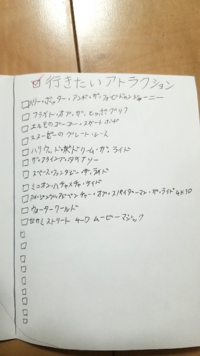 ☑行きたいアトラクション
□ハリー・ポッター・アンド・ザ・フォービドゥン・ジャーニー
□フライト・オブ・ザ・ヒッポグリフ
□エルモのゴーゴー・スケートボード
□スヌーピーのグレートレース
□ハリウッド・ドリーム・ザ・ライド
□ザ・フライング・ダイナソー
□スペース・ファンタジー・ザ・ライド
□ミニオン・ハチャメチャ・ライド
□アメージング・アドベンチャー・オブ・スパイダーマン・ザ・ライド4K3D
□ウォーターワールド
□セサミストリート 4-D ムービーマジック